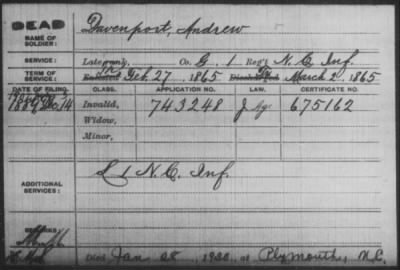 DEAD
NAME OF SOLDIER: Davenport, Andrew
SERVICE: Late Co. G. 1 Reg't N.C. Inf.
TERM OF SERVICE: Enlisted Feb. 27, 1865 March 2, 1865
DATE OF FILING. CLASS. APPLICATION NO. LAW. CERTIFICATE NO.
1889 Dec. 14 Invalid, 743248 675162
Widow,
Minor,
ADDITIONAL SERVICES: L 1 N.C. Inf.
REMARKS
Died Jan 28 at Plymouth, N.C.